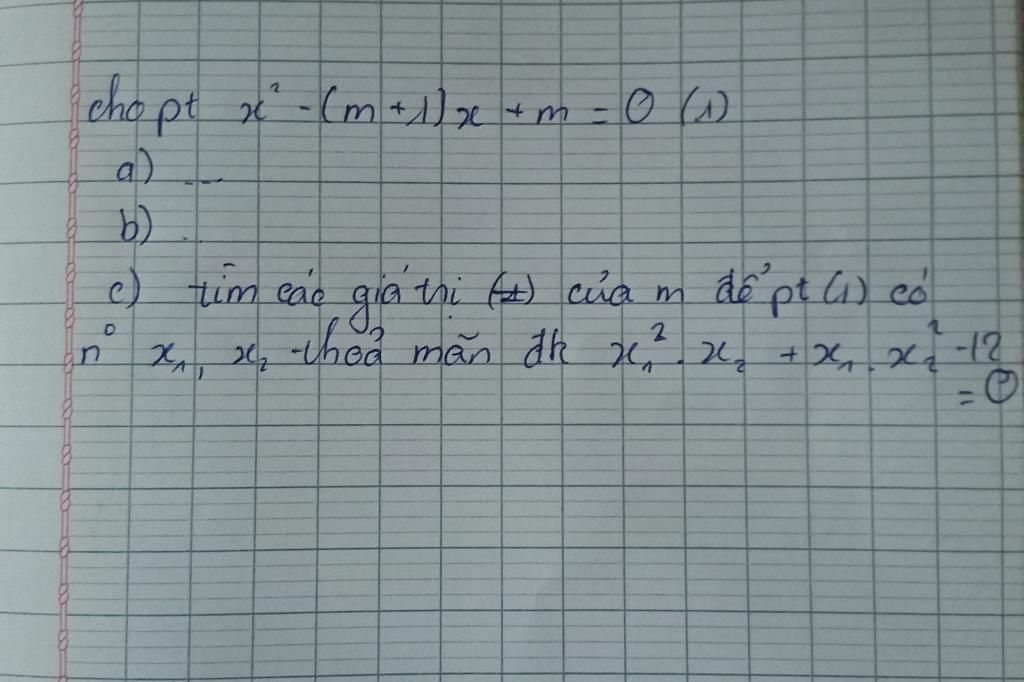 cho pt x² - (m + 1)x + m = 0 (1)
a) ...
b) ..
c) tìm các giá thị của m để pt (1) có
n° x₁, x₂ thoả mãn đk x₁². x₂ + x₁. x₂² - 12
= 0